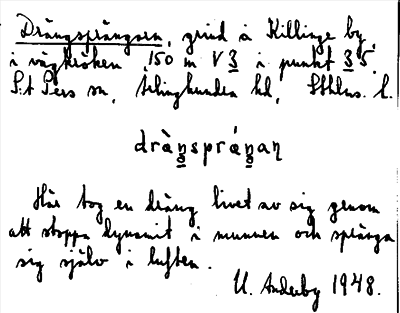 Drängsprängarn, grind å Killinge by,
i vägkröken 150 m V 3 i punkt 35.
S:t Pers sn, Ärlinghundra hd, Sthlms l.
dràŋspráŋaɳ
Här tog en dräng livet av sig genom
att stoppa dynamit i munnen och spränga
sig själv i luften.
U. Anderby 1948.